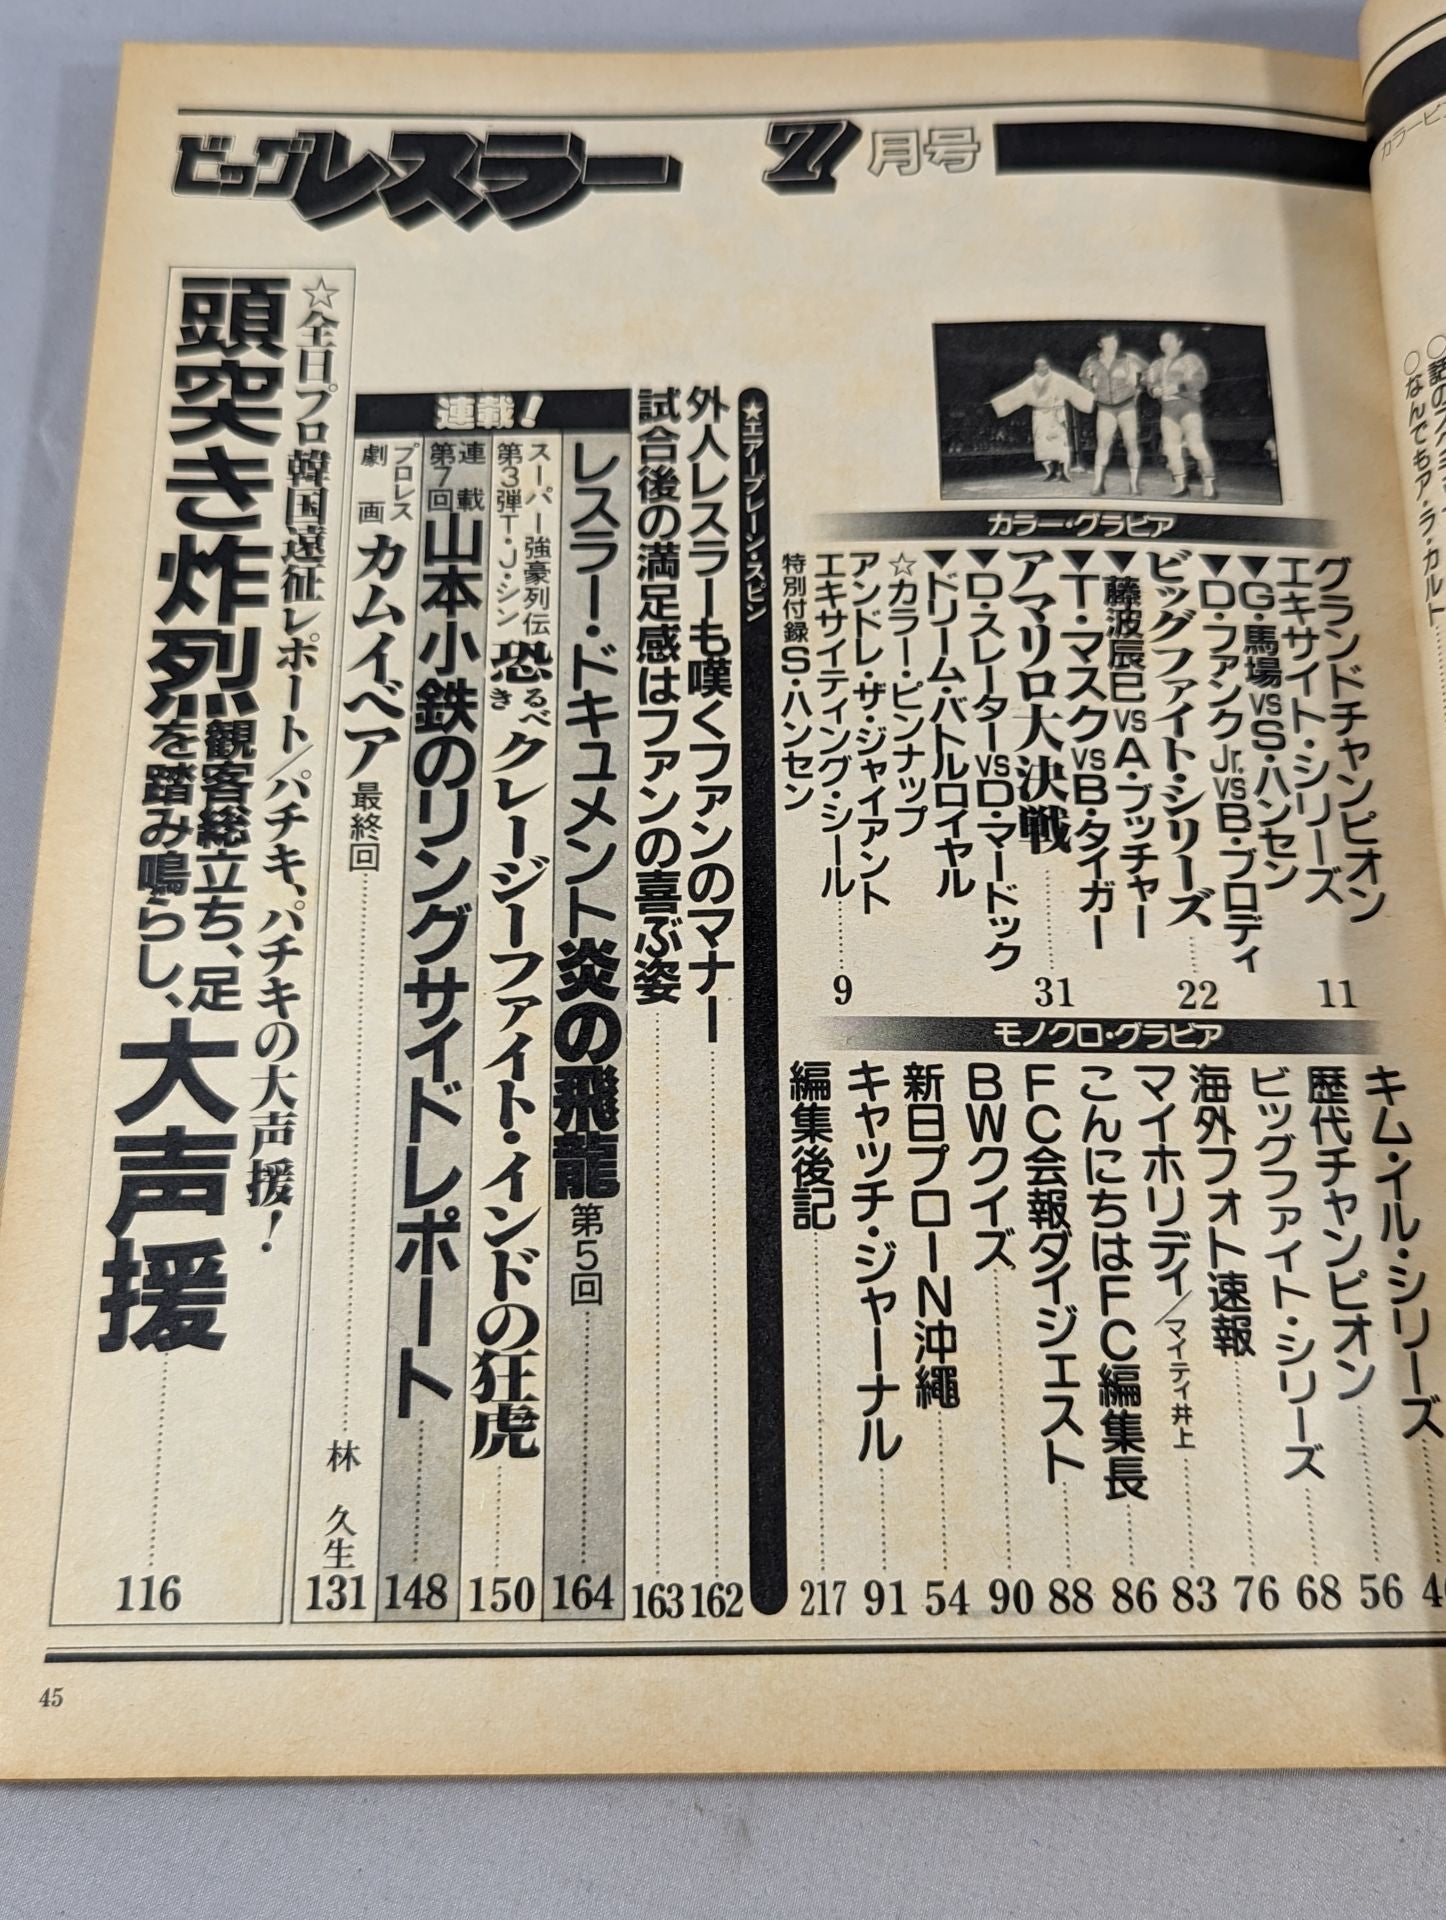 ビッグレスラー 7月号
カラー・グラビア
グランドチャンピオン
エキサイト・シリーズ……11
▼G・馬場vsS・ハンセン
▼D・ファンクJr.vsB・ブロディ
ビッグファイト・シリーズ……22
▼藤波辰巳vsA・ブッチャー
▼T・マスクvsB・タイガー
アマリロ大決戦……31
▼D・スレーターvsD・マードック
▼ドリーム・バトルロイヤル
☆カラー・ピンナップ
アンドレ・ザ・ジャイアント
エキサイティング・シール……9
特別付録S・ハンセン
モノクロ・グラビア
キム・イル・シリーズ
歴代チャンピオン……56
ビッグファイト・シリーズ……68
海外フォト速報……76
マイホリディ/マイティ井上……83
こんにちはFC編集長……86
FC会報ダイジェスト……88
BWクイズ……90
新日プロ―N沖縄……54
キャッチ・ジャーナル……91
編集後記……217
★エアープレーン・スピン
外人レスラーも嘆くファンのマナー……162
試合後の満足感はファンの喜ぶ姿……163
連載!
レスラー・ドキュメント炎の飛龍 第5回……164
スーパー強豪列伝
第3弾T・J・シン 恐るべき クレージーファイト・インドの狂虎……150
連載
第7回 山本小鉄のリングサイドレポート……148
プロレス
劇画 カムイベア 最終回……林 久生 131
☆全日プロ韓国遠征レポート/パチキ、パチキの大声援!
頭突き炸烈 観客総立ち、足を踏み鳴らし、大声援……116
45
カラー
○なんでもア・ラ・カルト